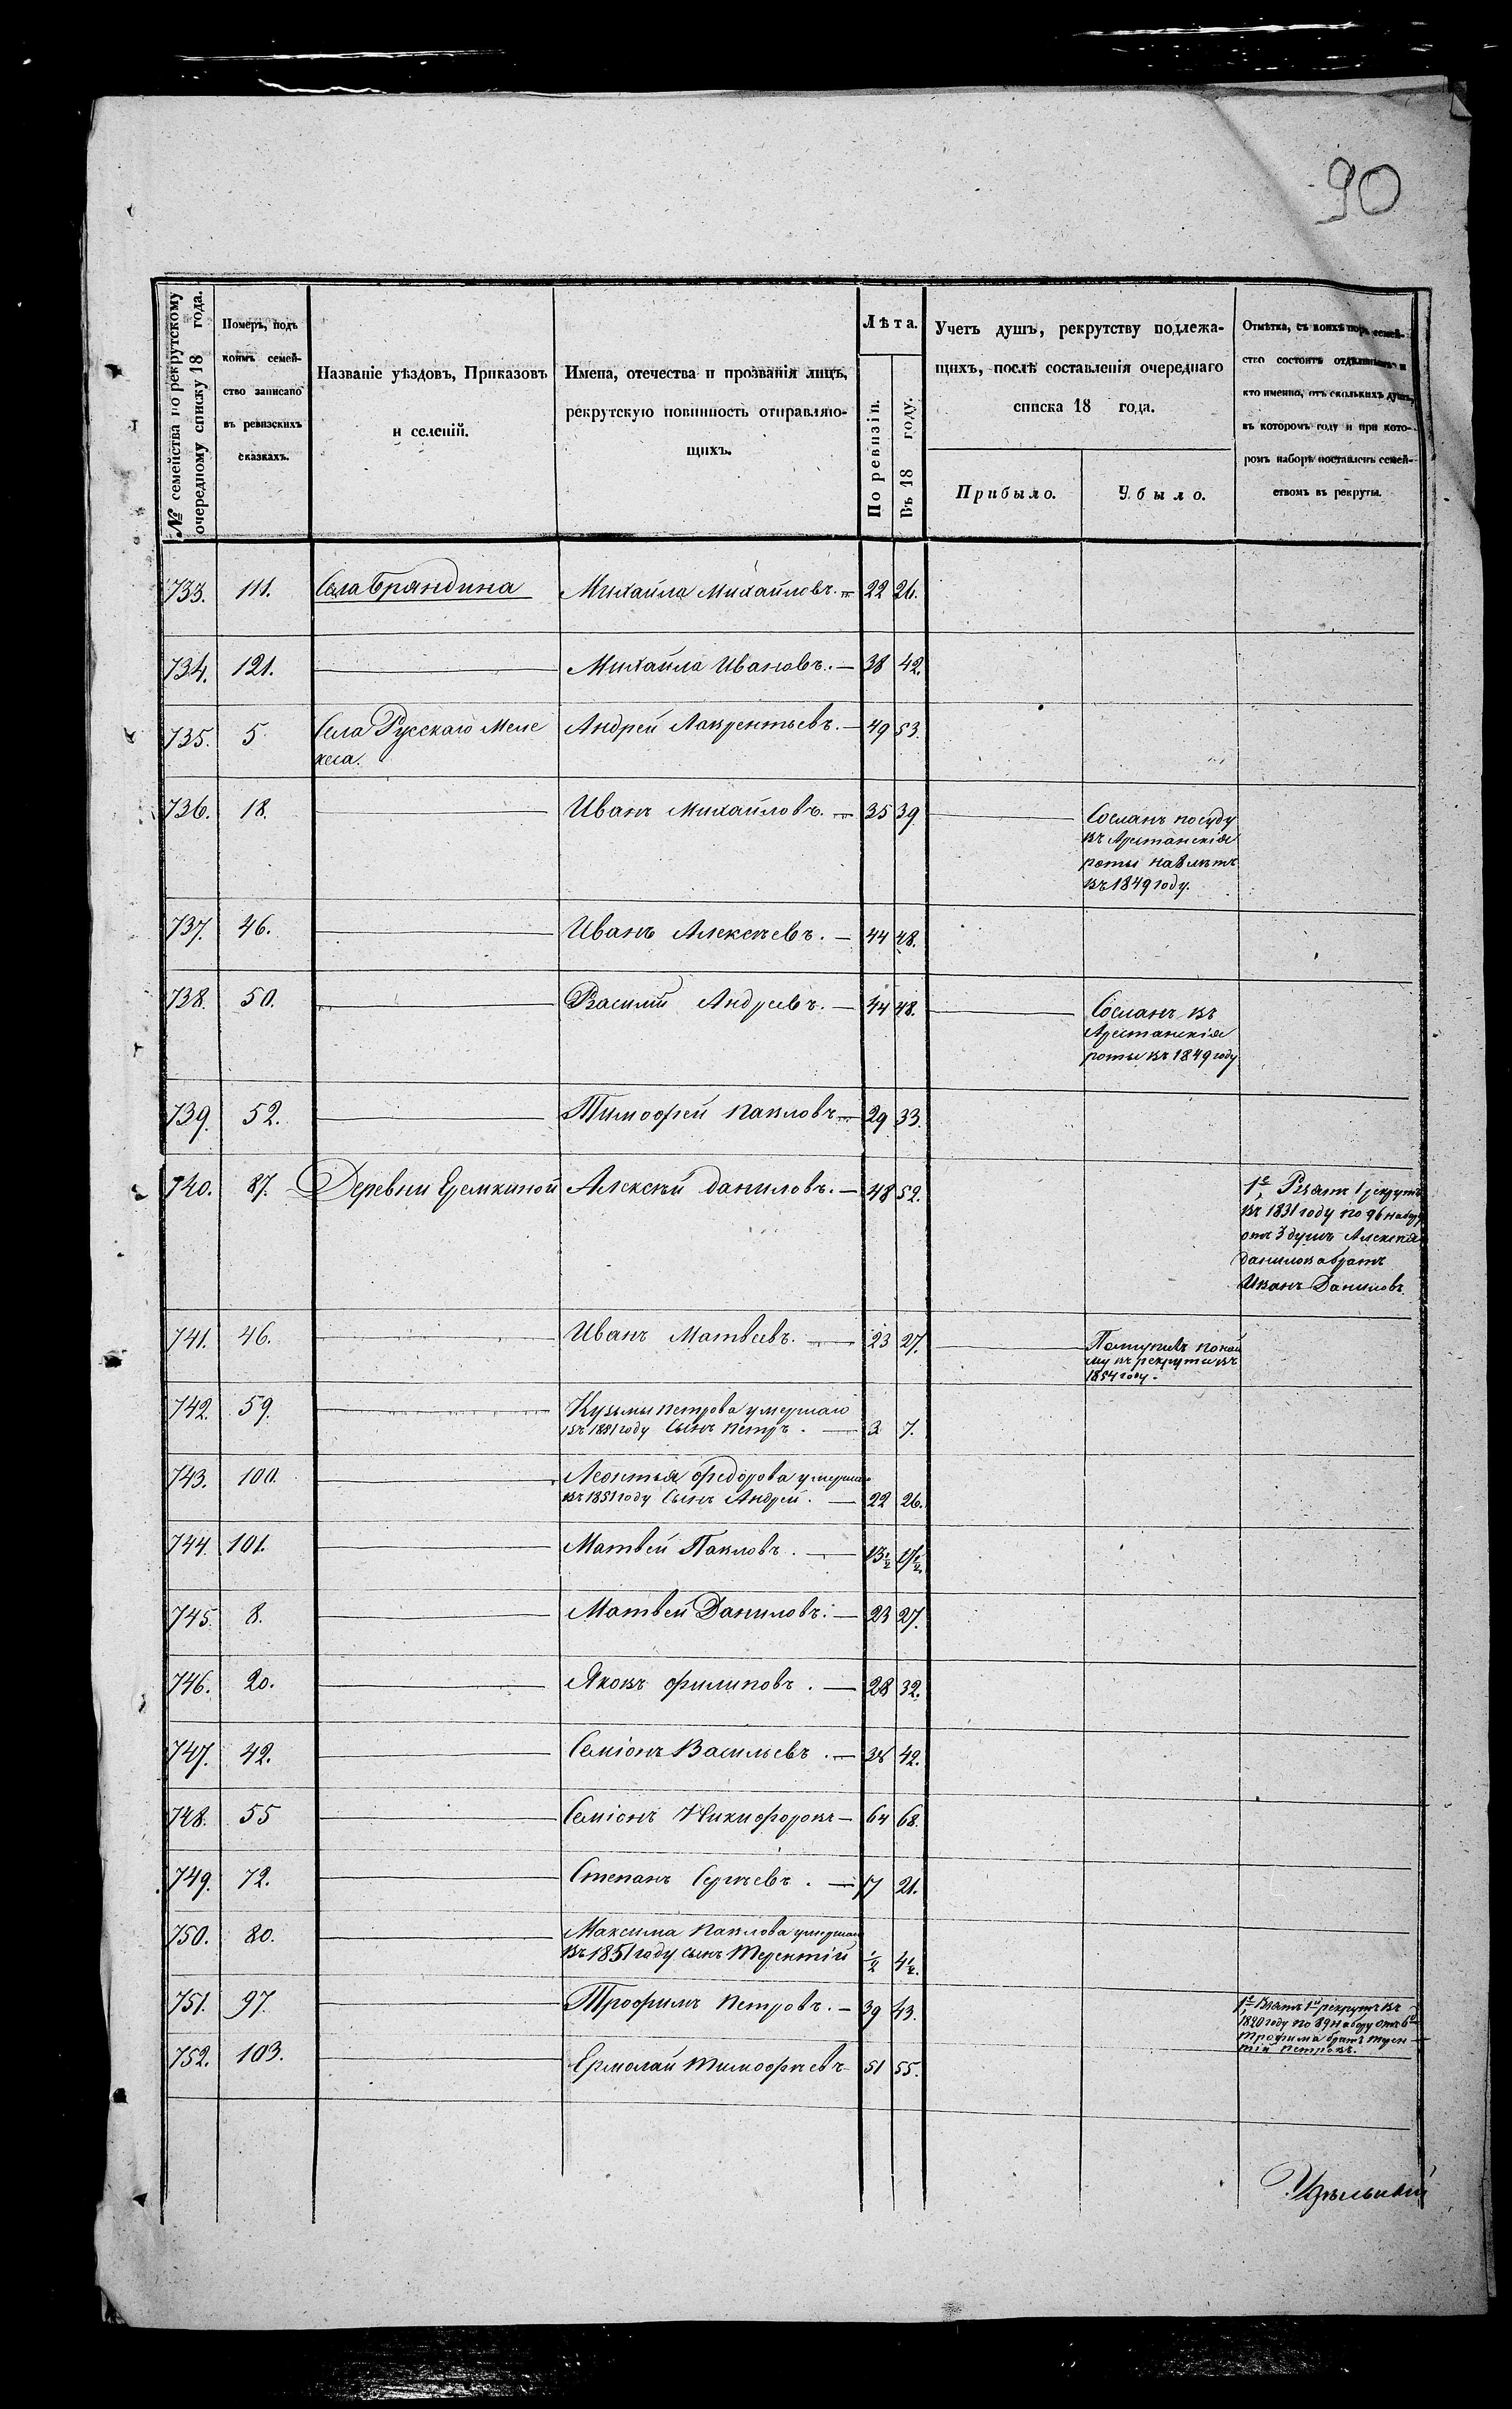 90
№ семейства по рекрутскому очередному списку 18 года.
Померъ, подъ коимъ семейство записано въ ревизскихъ сказкахъ.
Названіе уѣздовъ, Приказовъ и селеній.
Имена, отечества и прозванія лицъ, рекрутскую повинность отправляющихъ.
Лѣта.
По ревизіи.
Въ 18 году.
Учетъ душъ, рекрутству подлежащихъ, послѣ составленія очереднаго списка 18 года.
Прибыло.
Убыло.
Отмѣтка, съ коихъ поръ семейство состоитъ отдѣльнымъ и кто именно, отъ сколькихъ душъ, въ которомъ году и при которомъ наборѣ поставленъ семействомъ въ рекруты.
733. 111. Села Бряндина Михаила Михайловъ. 22 26.
734. 121. Михаила Ивановъ. 38 42.
735. 5 Села Русскаго Меле Андрей Лаврентьевъ. 49 53.
кеса.
736. 18. Иванъ Михайловъ. 35 39. Сосланъ по суду
въ Арестанскія
роты на 8 лѣтъ
въ 1849 году.
737. 46. Иванъ Алексѣевъ. 44 48.
738. 50. Василій Андреевъ. 44 48. Сосланъ въ
Арестанскія
роты въ 1849 году
739. 52. Тимофей Павловъ 29 33.
740. 87. Деревни Еремкиной Алексѣй Даниловъ. 48 52. 1е Взятъ 1 рекрутъ
въ 1831 году по 96 набору
отъ 3 душъ Алексѣя
Данилова братъ
Иванъ Даниловъ.
741. 46. Иванъ Матвеевъ. 23 27. Поступилъ по най
му въ рекруты въ
1854 году.
742. 59. Кузьмы Петрова умершаго
въ 1851 году Сынъ Петръ. 3 7.
743. 100. Леонтья Федорова умершаго
въ 1851 году Сынъ Андрей. 22 26.
744. 101. Матвей Павловъ. 13½ 17½
745. 8. Матвей Даниловъ. 23 27.
746. 20. Яковъ Филиповъ. 28 32.
747. 42. Семіонъ Васильевъ. 38 42.
748. 55 Семіонъ Никифоровъ 64 68.
749. 72. Степанъ Сергѣевъ. 17 21.
750. 80. Максима Павлова умершаго
въ 1851 году сынъ Терентій ½ 4½.
751. 97. Трофимъ Петровъ. 39 43. 1е Взятъ 1й рекрутъ въ
1820 году по 89 набору отъ 6
Трофима братъ
Петровъ.
752. 103. Ермолай Тимофѣевъ 51 55.
Удѣльный